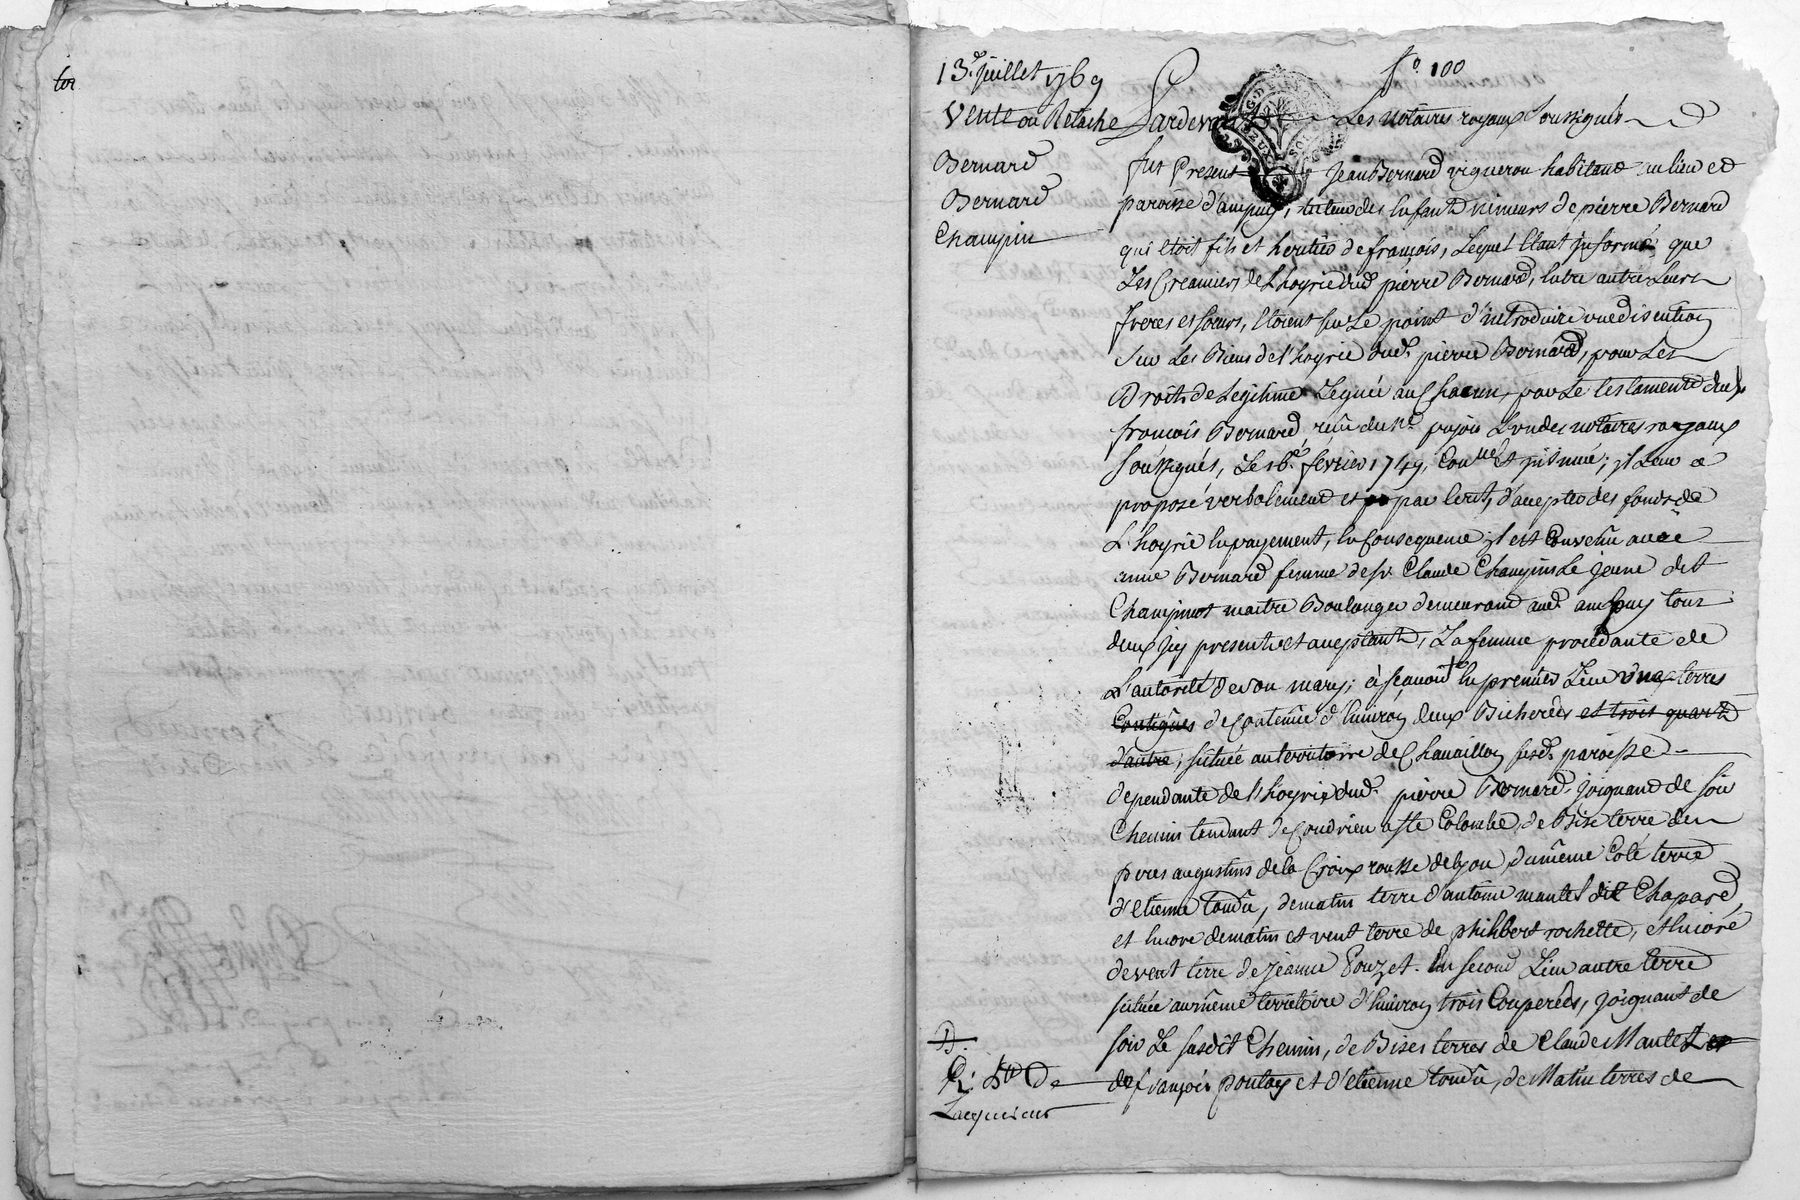 13e. juillet 1769
fo. 100
Vente ou Relache
Bernard
Bernard
Champin
Pardevant Les notaires royaux Soussignés
fut Present Jean Bernard vigneron habitant au lieu et
paroisse d'ampuis, tuteur des Enfants mineurs de pierre Bernard
qui Etoit fils et heritier de françois, Lequel Etant informé que
Les Creanciers de L'hoyrie dud. pierre Bernard, Entre autre Leurs
freres et soeurs, Etoient sur Le point d'introduire une discution
sur Les Biens de l'hoyrie dud. pierre Bernard, pour Les
Droits de Legitime Legués a un Chacun, par Le testament dud.
françois Bernard, reçu du Me. pujoin L'un des notaires royaux
soussignés, Le 16e. fevrier 1749, Conllé et jnsinué; jl Leur a
proposé verbalement et par Ecrit, d'accepter des fonds de
L'hoyrie En payement, En Consequence jl est Convenu avec
anne Bernard femme de sr. Claude Champin Le jeune dit
Champinot maitre Boulanger demeurant aud. ampuis tous
deux jcy presents et acceptants, La femme procedante de
L'autorité de son mary; à sçavoir En premier Lieu une terres
Contigues de Contenue d'Environ deux Bicherées et trois quarts
d'autre, située au territoire de Chavaillon susd. paroisse
dependante de l'hoyrie dud. pierre Bernard, joignant de soir
Chemin tendant de Condrieu a Ste Colombe, de Bise terre des
peres augustins de la Croix rousse de Lyon, du même Coté terre
d'Etienne tondu, de matin terre d'antoine mantel dit Chapard,
et Encore de matin et vent terre de philibert rochette, et Encore
de vent terre de Jeanne Pouzet. En second Lieu autre terre
située au même territoire d'Environ trois Couperées, joignant de
soir Le susdit Chemin, de Bise terres de Claude Mantel et
de françois et d'etienne tondu, de Matin terres de